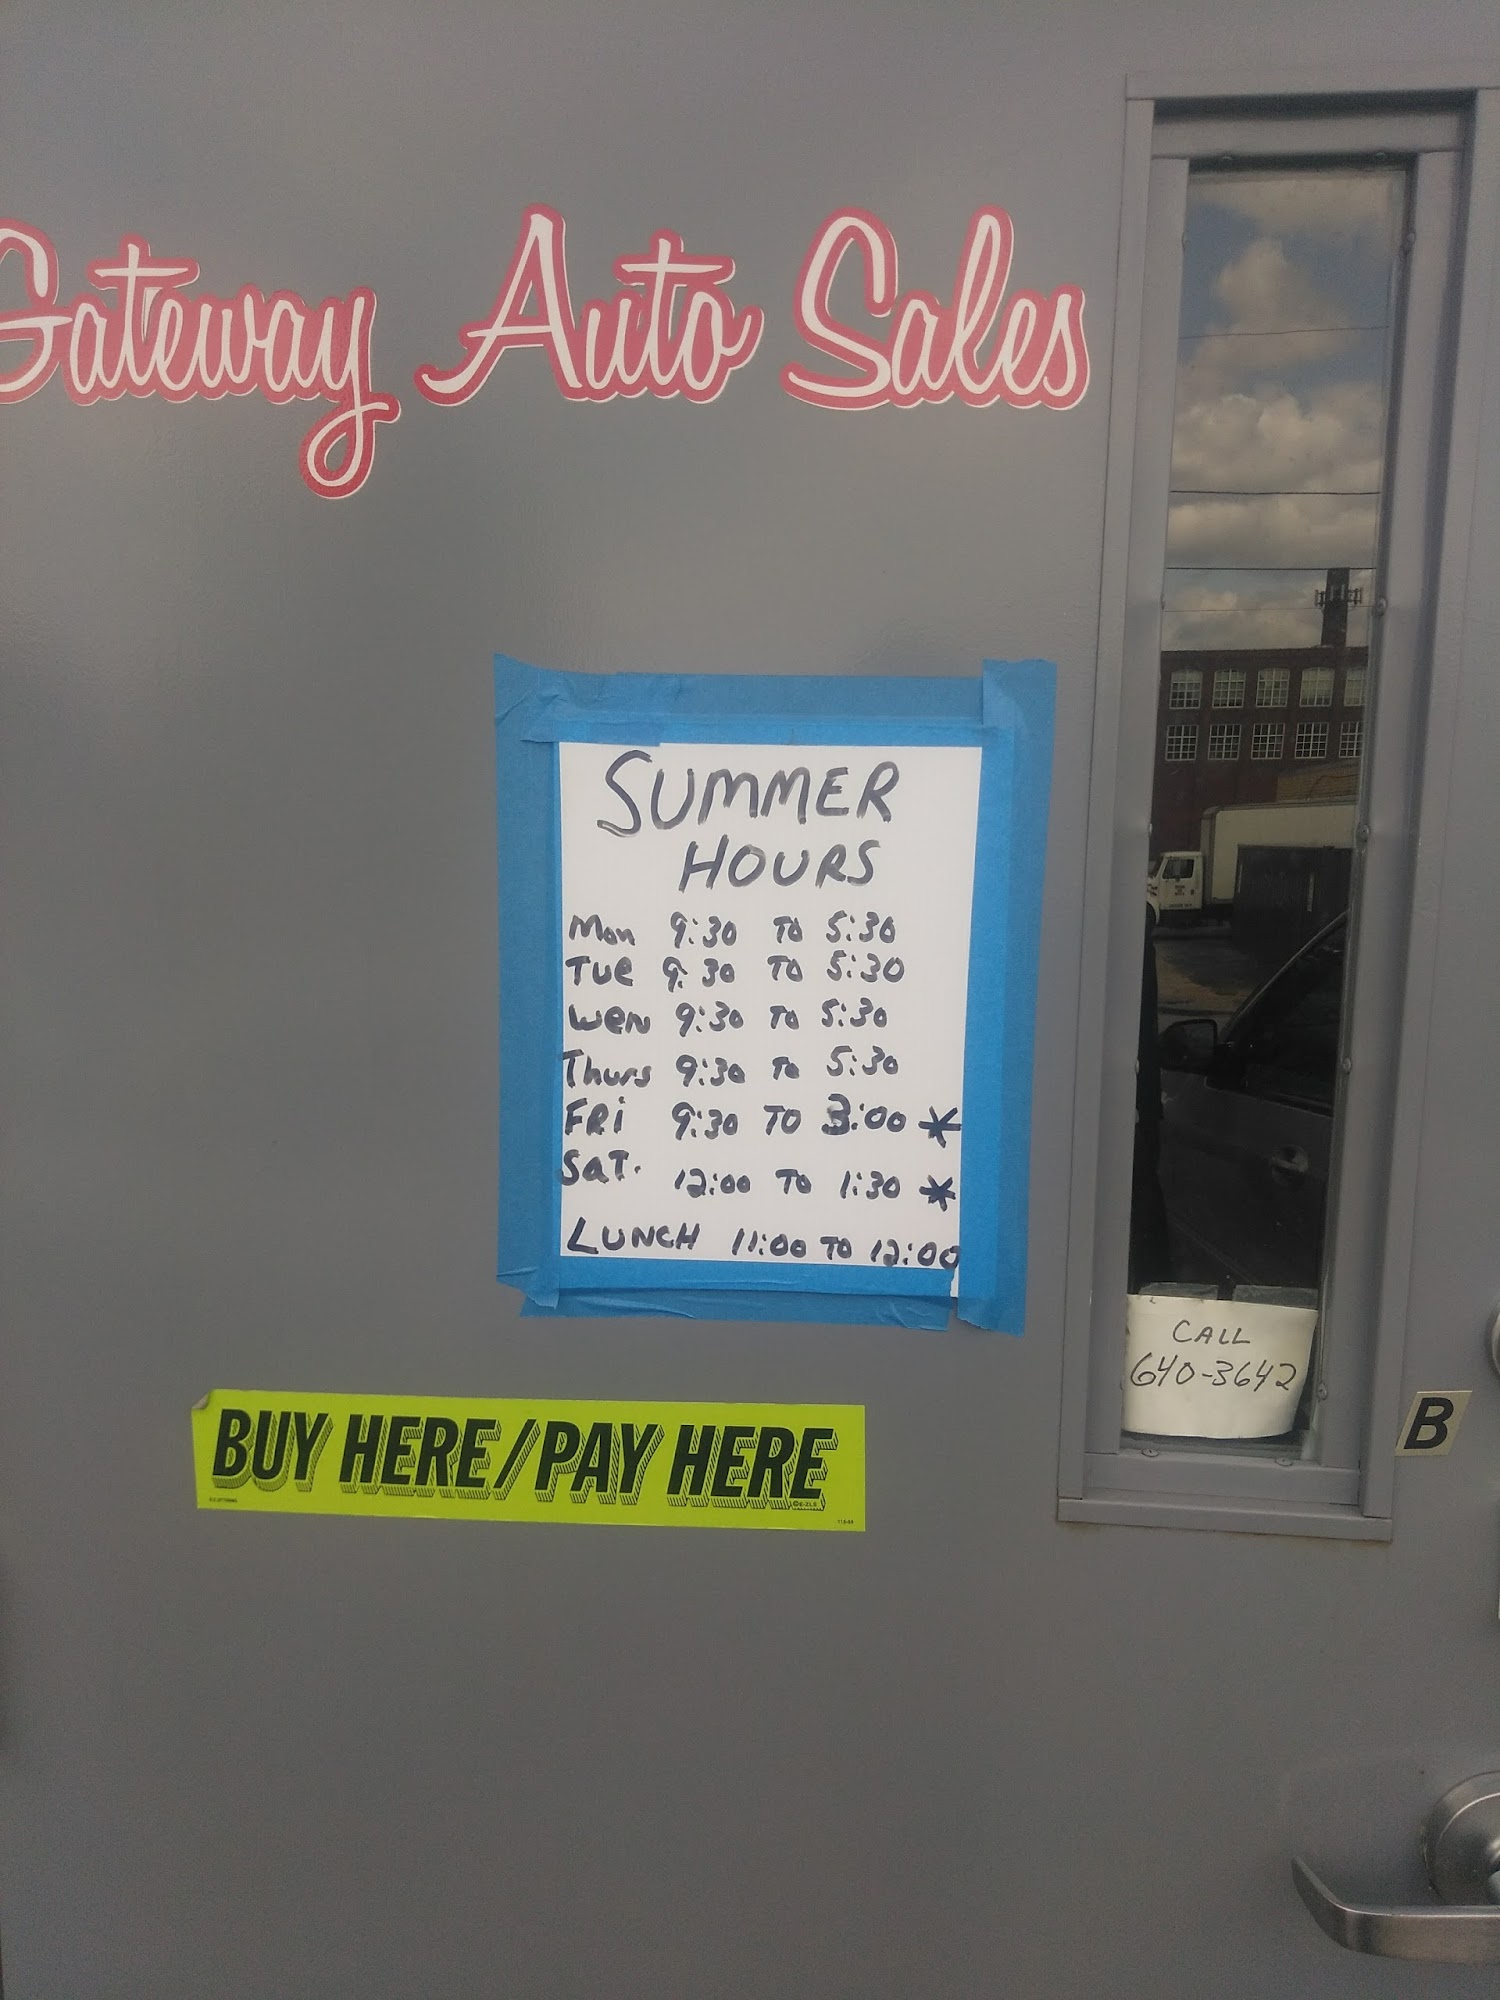 Gateway Auto Sales
SUMMER
HOURS
Mon 9:30 TO 5:30
TUE 9:30 TO 5:30
WEN 9:30 TO 5:30
Thurs 9:30 To 5:30
FRi 9:30 TO 3:00 *
SaT. 12:00 TO 1:30 *
LUNCH 11:00 TO 12:00
CALL
640-3642
B
BUY HERE/PAY HERE